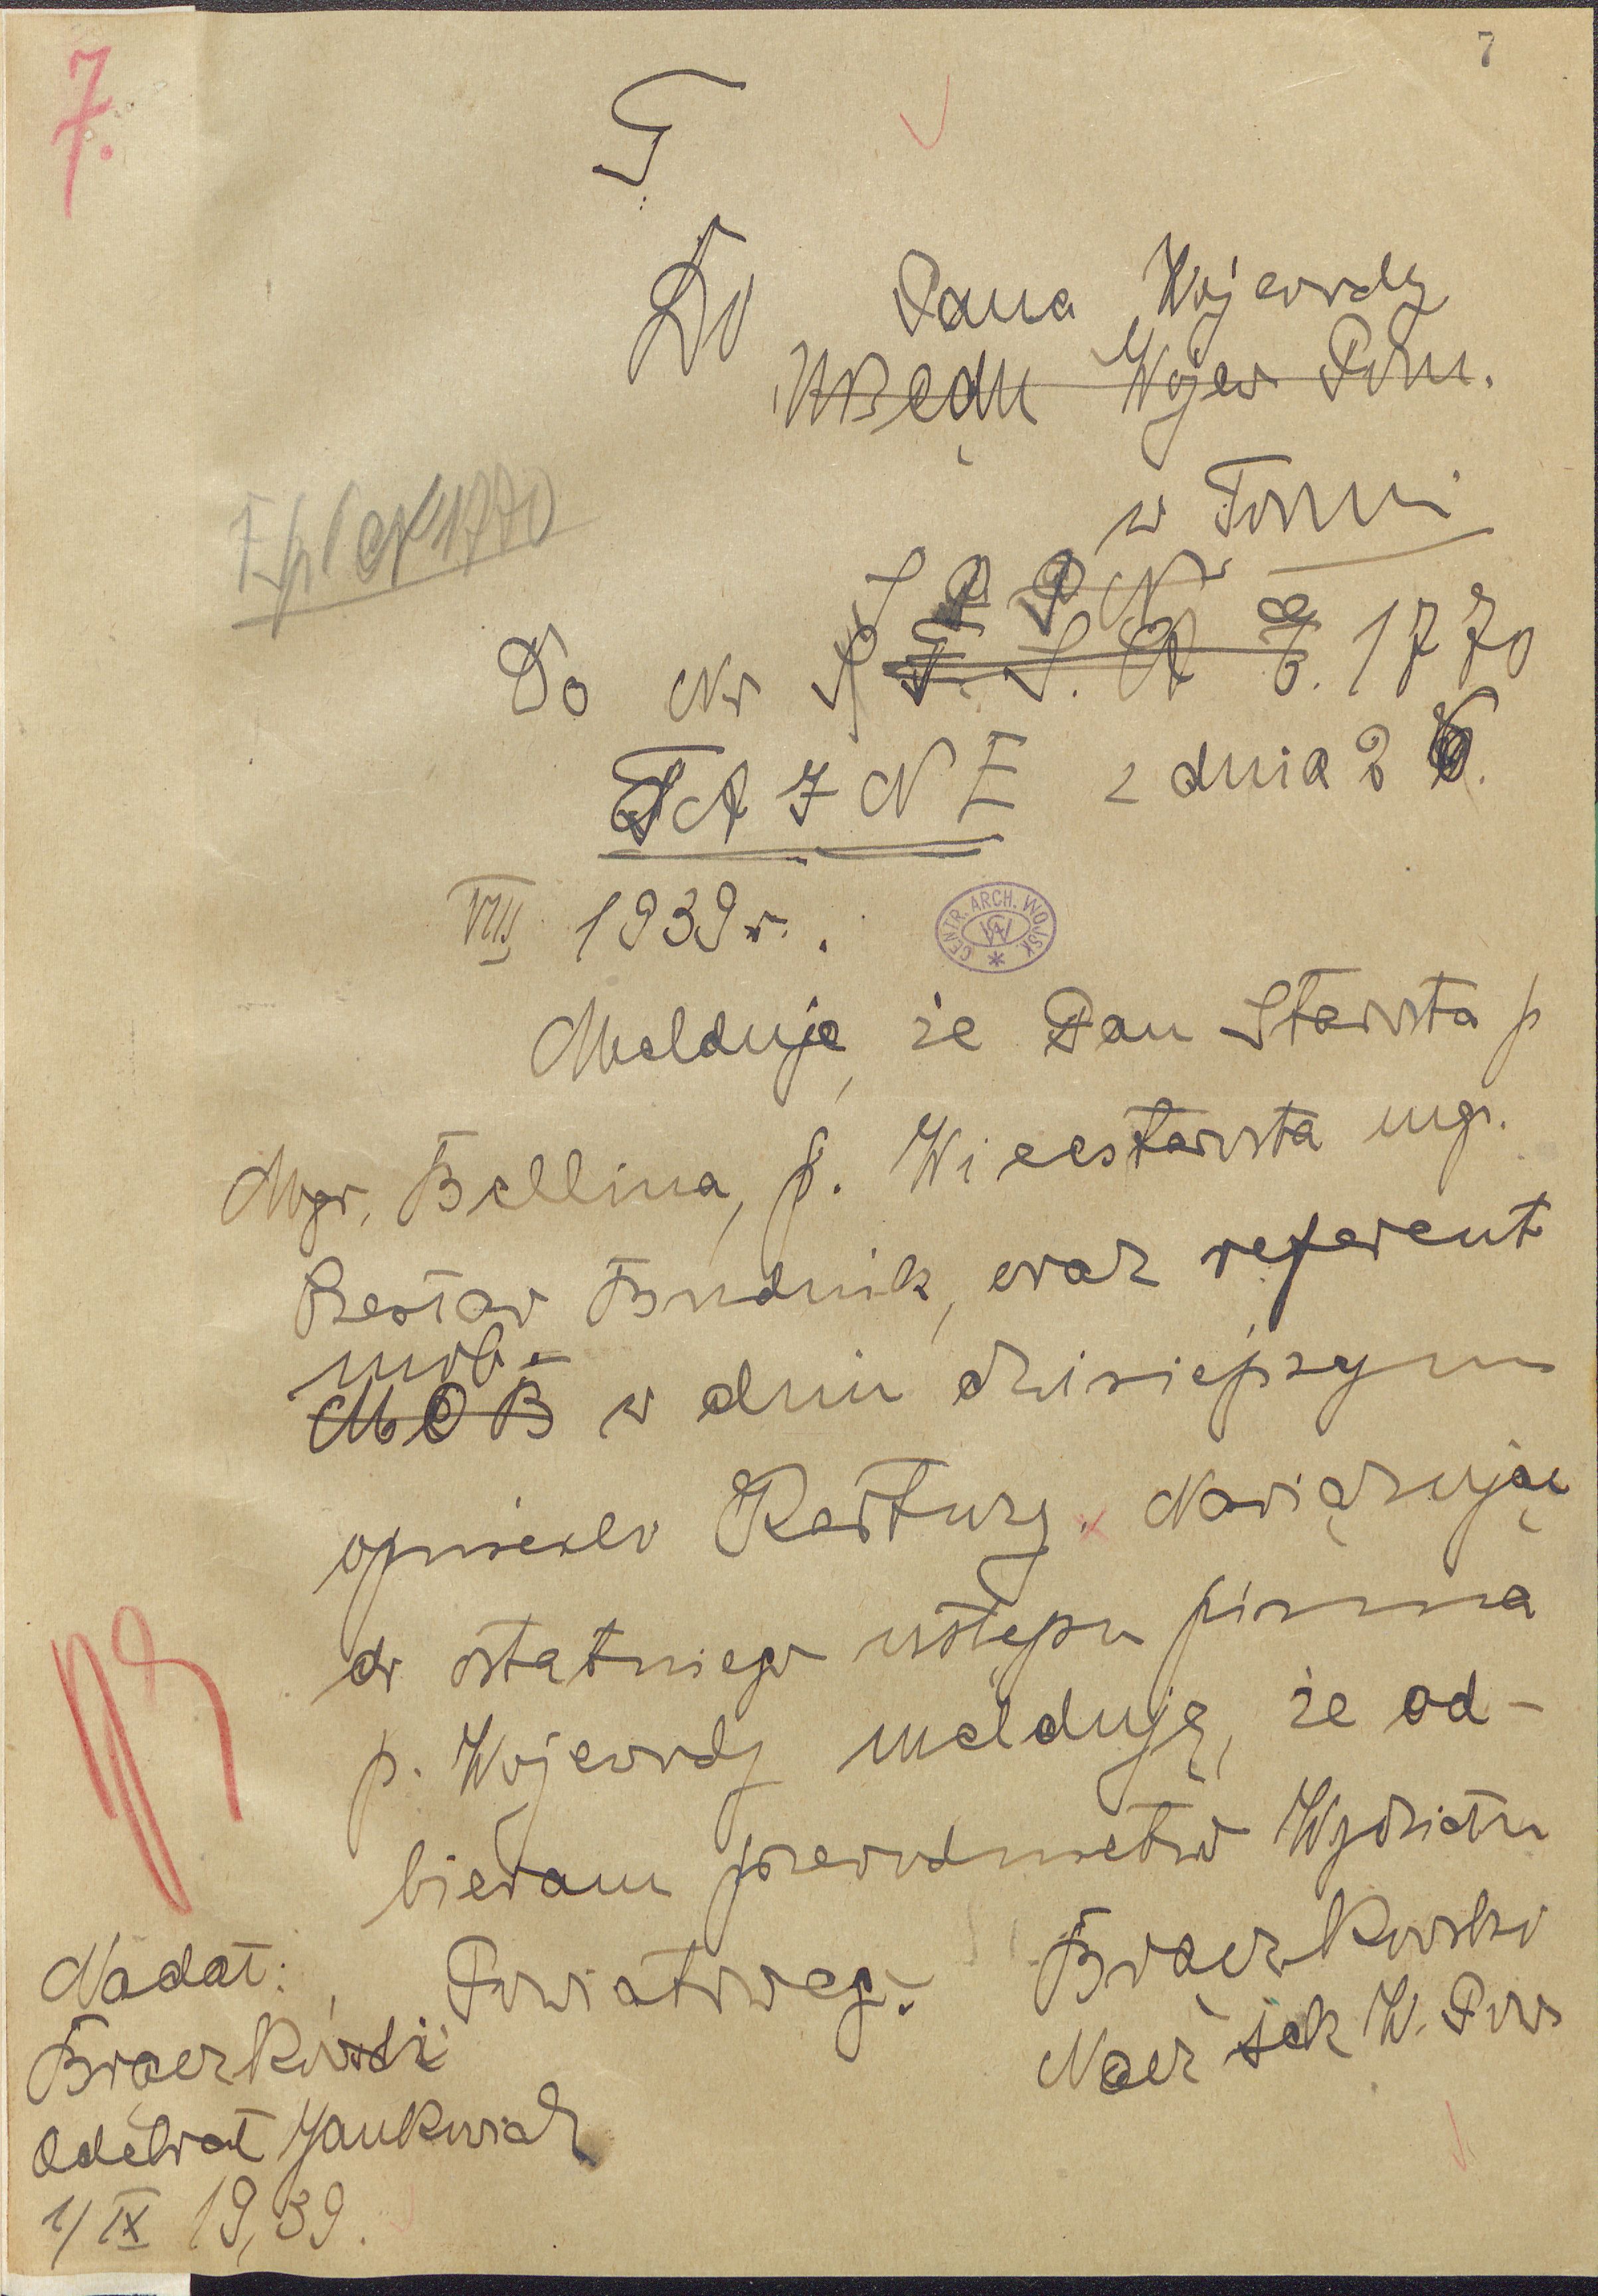 7
7.
T
Do Pana Wojewody
Urzędu Wojew Pom.
w Toruniu
1770
S P P N
Do Nr 1770
TAJNE z dnia 26.
VIII 1939 r.
CENTR. ARCH. WOJSK
CAW
Melduję, że Pan Starosta p
Mgr. Bellina, p. Wicestarosta mgr.
Budnik, oraz referent
mob.
MOB w dniu dzisiejszym
opuścili Kartuzy. Nawiązując
do ostatniego ustępu pisma
p. Wojewody melduję, że od-
bieram przewodnictwo Wydziału
Powiatowego.
Nacz sek W. Pow
Nadał:
Odebrał Jankowiak
1/IX 19,39.